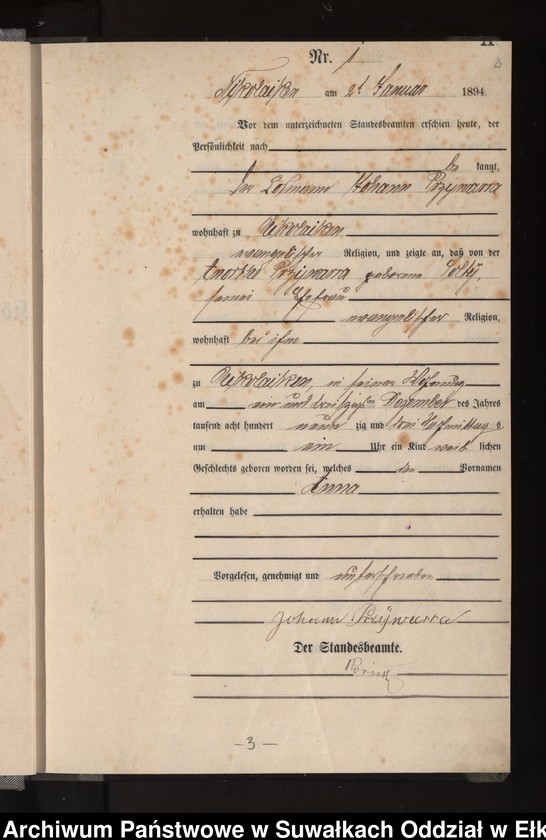 Nr. 1
Nikolaiken am 2t. Januar 1894
Vor dem unterzeichneten Standesbeamten erschien heute, der
Persönlichkeit nach
be kannt,
der Losmann Johann Przywarra
wohnhaft zu Nikolaiken
evangelischer Religion, und zeigte an, daß von der
Przywarra geborene
seiner Ehefrau
evangelischer Religion,
wohnhaft bei ihm
zu Nikolaiken, in seiner Wohnung
am ein und dreißigsten Dezember des Jahres
tausend acht hundert neun zig und drei Nachmittags
um ein Uhr ein Kind weib lichen
Geschlechts geboren worden sei, welches den Vornamen
Anna
erhalten habe
Vorgelesen, genehmigt und unterschrieben
Johann Przÿwarra
Der Standesbeamte.
– 3 –
Archiwum Państwowe w Suwałkach Oddział w Ełk